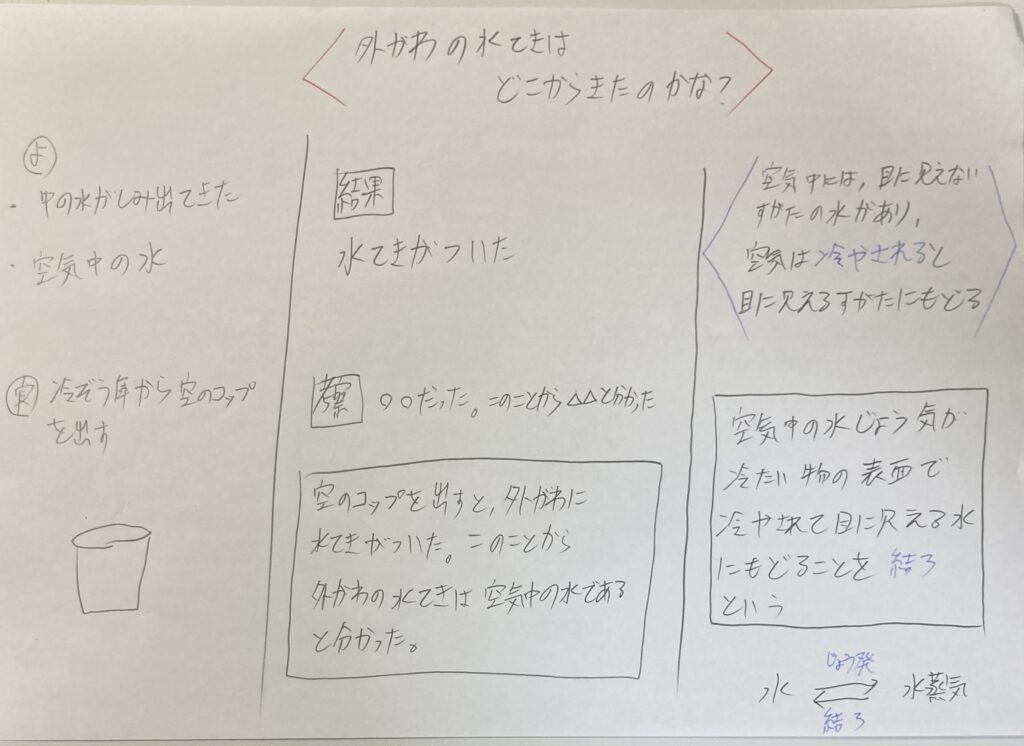 外がわの水てきは
どこからきたのかな?
よ
・中の水がしみ出てきた
・空気中の水
実 冷ぞう年から空のコップ
を出す
結果
水てきがついた
考察 ○○だった。このことから△△と分かった
空のコップを出すと、外がわに
水てきがついた。このことから
外がわの水てきは空気中の水である
と分かった。
空気中には、目に見えない
すがたの水があり、
空気は冷やされると
目に見えるすがたにもどる
空気中の水じょう気が
冷たい物の表面で
冷やされて目に見える水
にもどることを結ろ
という
じょう発
水 水蒸気
結ろ